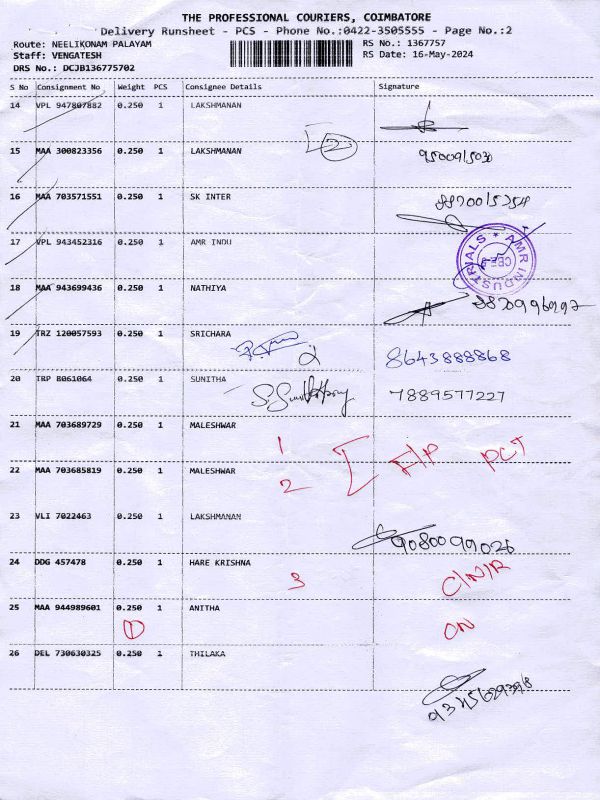 THE PROFESSIONAL COURIERS, COIMBATORE
Delivery Runsheet - PCS - Phone No.:0422-3505555 - Page No.:2
Route: NEELIKONAM PALAYAM RS No.: 1367757
Staff: VENGATESH RS Date: 16-May-2024
DRS No.: DCJB136775702
S No Consignment No Weight PCS Consignee Details Signature
14 VPL 947807882 0.250 1 LAKSHMANAN
2
15 MAA 300823356 0.250 1 LAKSHMANAN 9500915030
16 MAA 703571551 0.250 1 SK INTER
17 VPL 943452316 0.250 1 AMR INDU
AMR INDUSTRIALS * CBE-5
18 MAA 943699436 0.250 1 NATHIYA
19 TRZ 120057593 0.250 1 SRICHARA
2 8643888868
20 TRP 8061064 0.250 1 SUNITHA
7889577227
21 MAA 703689729 0.250 1 MALESHWAR 1
F/P PCT
22 MAA 703685819 0.250 1 MALESHWAR 2
23 VLI 7022463 0.250 1 LAKSHMANAN
9080099026
24 DDG 457478 0.250 1 HARE KRISHNA 3 C/N/R
25 MAA 944989601 0.250 1 ANITHA
1 ON
26 DEL 730630325 0.250 1 THILAKA